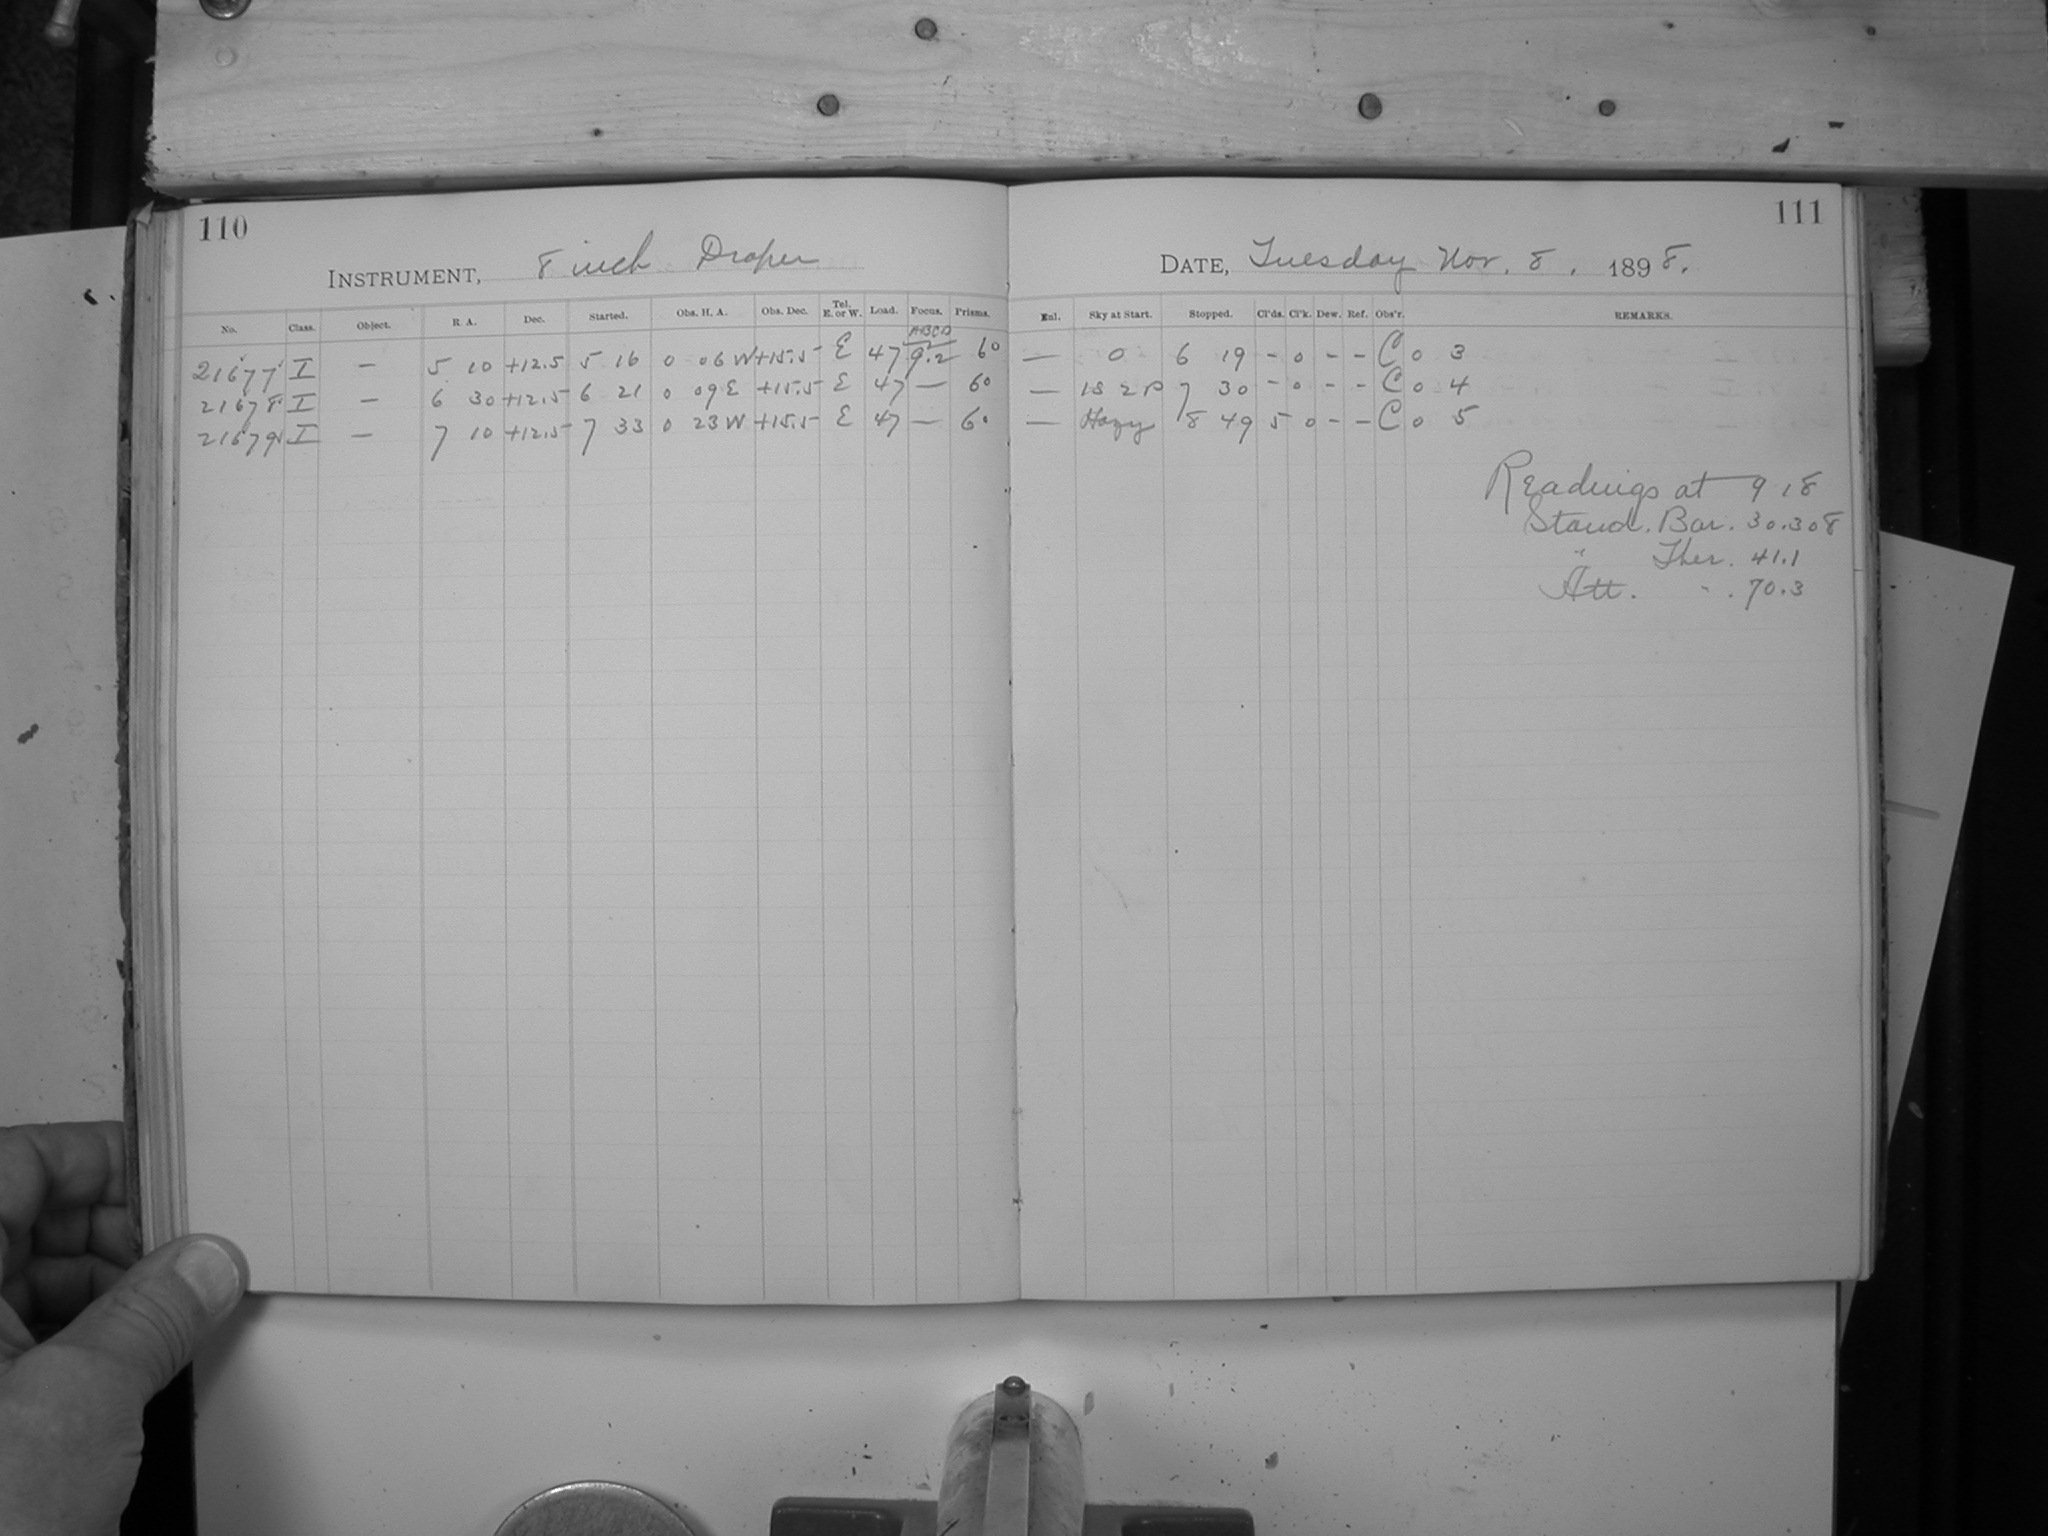 110
111
INSTRUMENT, 8 inch Draper
DATE, Tuesday Nov. 8. 1898.
No. Class. Object. R. A. Dec. Started. Obs. H. A. Obs. Dec. Tel. E. or W. Load. Focus. Prisms. Enl. Sky at Start. Stopped. Cl'ds. Cl'k. Dew. Ref. Obs'r. REMARKS.
ABCD
21677 I — 5 10 +12.5 5 16 0 06 W +15.5 E 47 9.2 60 — 0 6 19 - 0 - - C 0 3
21678 I — 6 30 +12.5 6 21 0 09 E +15.5 E 47 — 60 — 7 30 - 0 - - C 0 4
21679 I — 7 10 +12.5 7 33 0 23 W +15.5 E 47 — 60 — Hazy 8 49 5 0 - - C 0 5
Readings at 9 18
Stand. Bar. 30.308
" Ther. 41.1
Att. " . 70.3